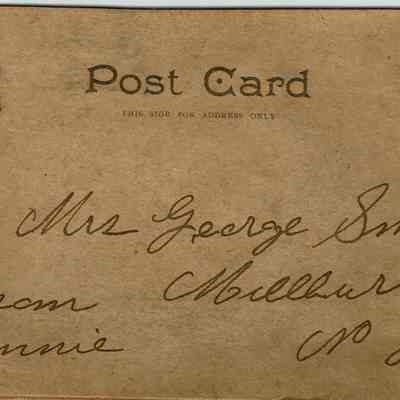 Post Card
THIS SIDE FOR ADDRESS ONLY
Mrs George Sm
Millbur
N